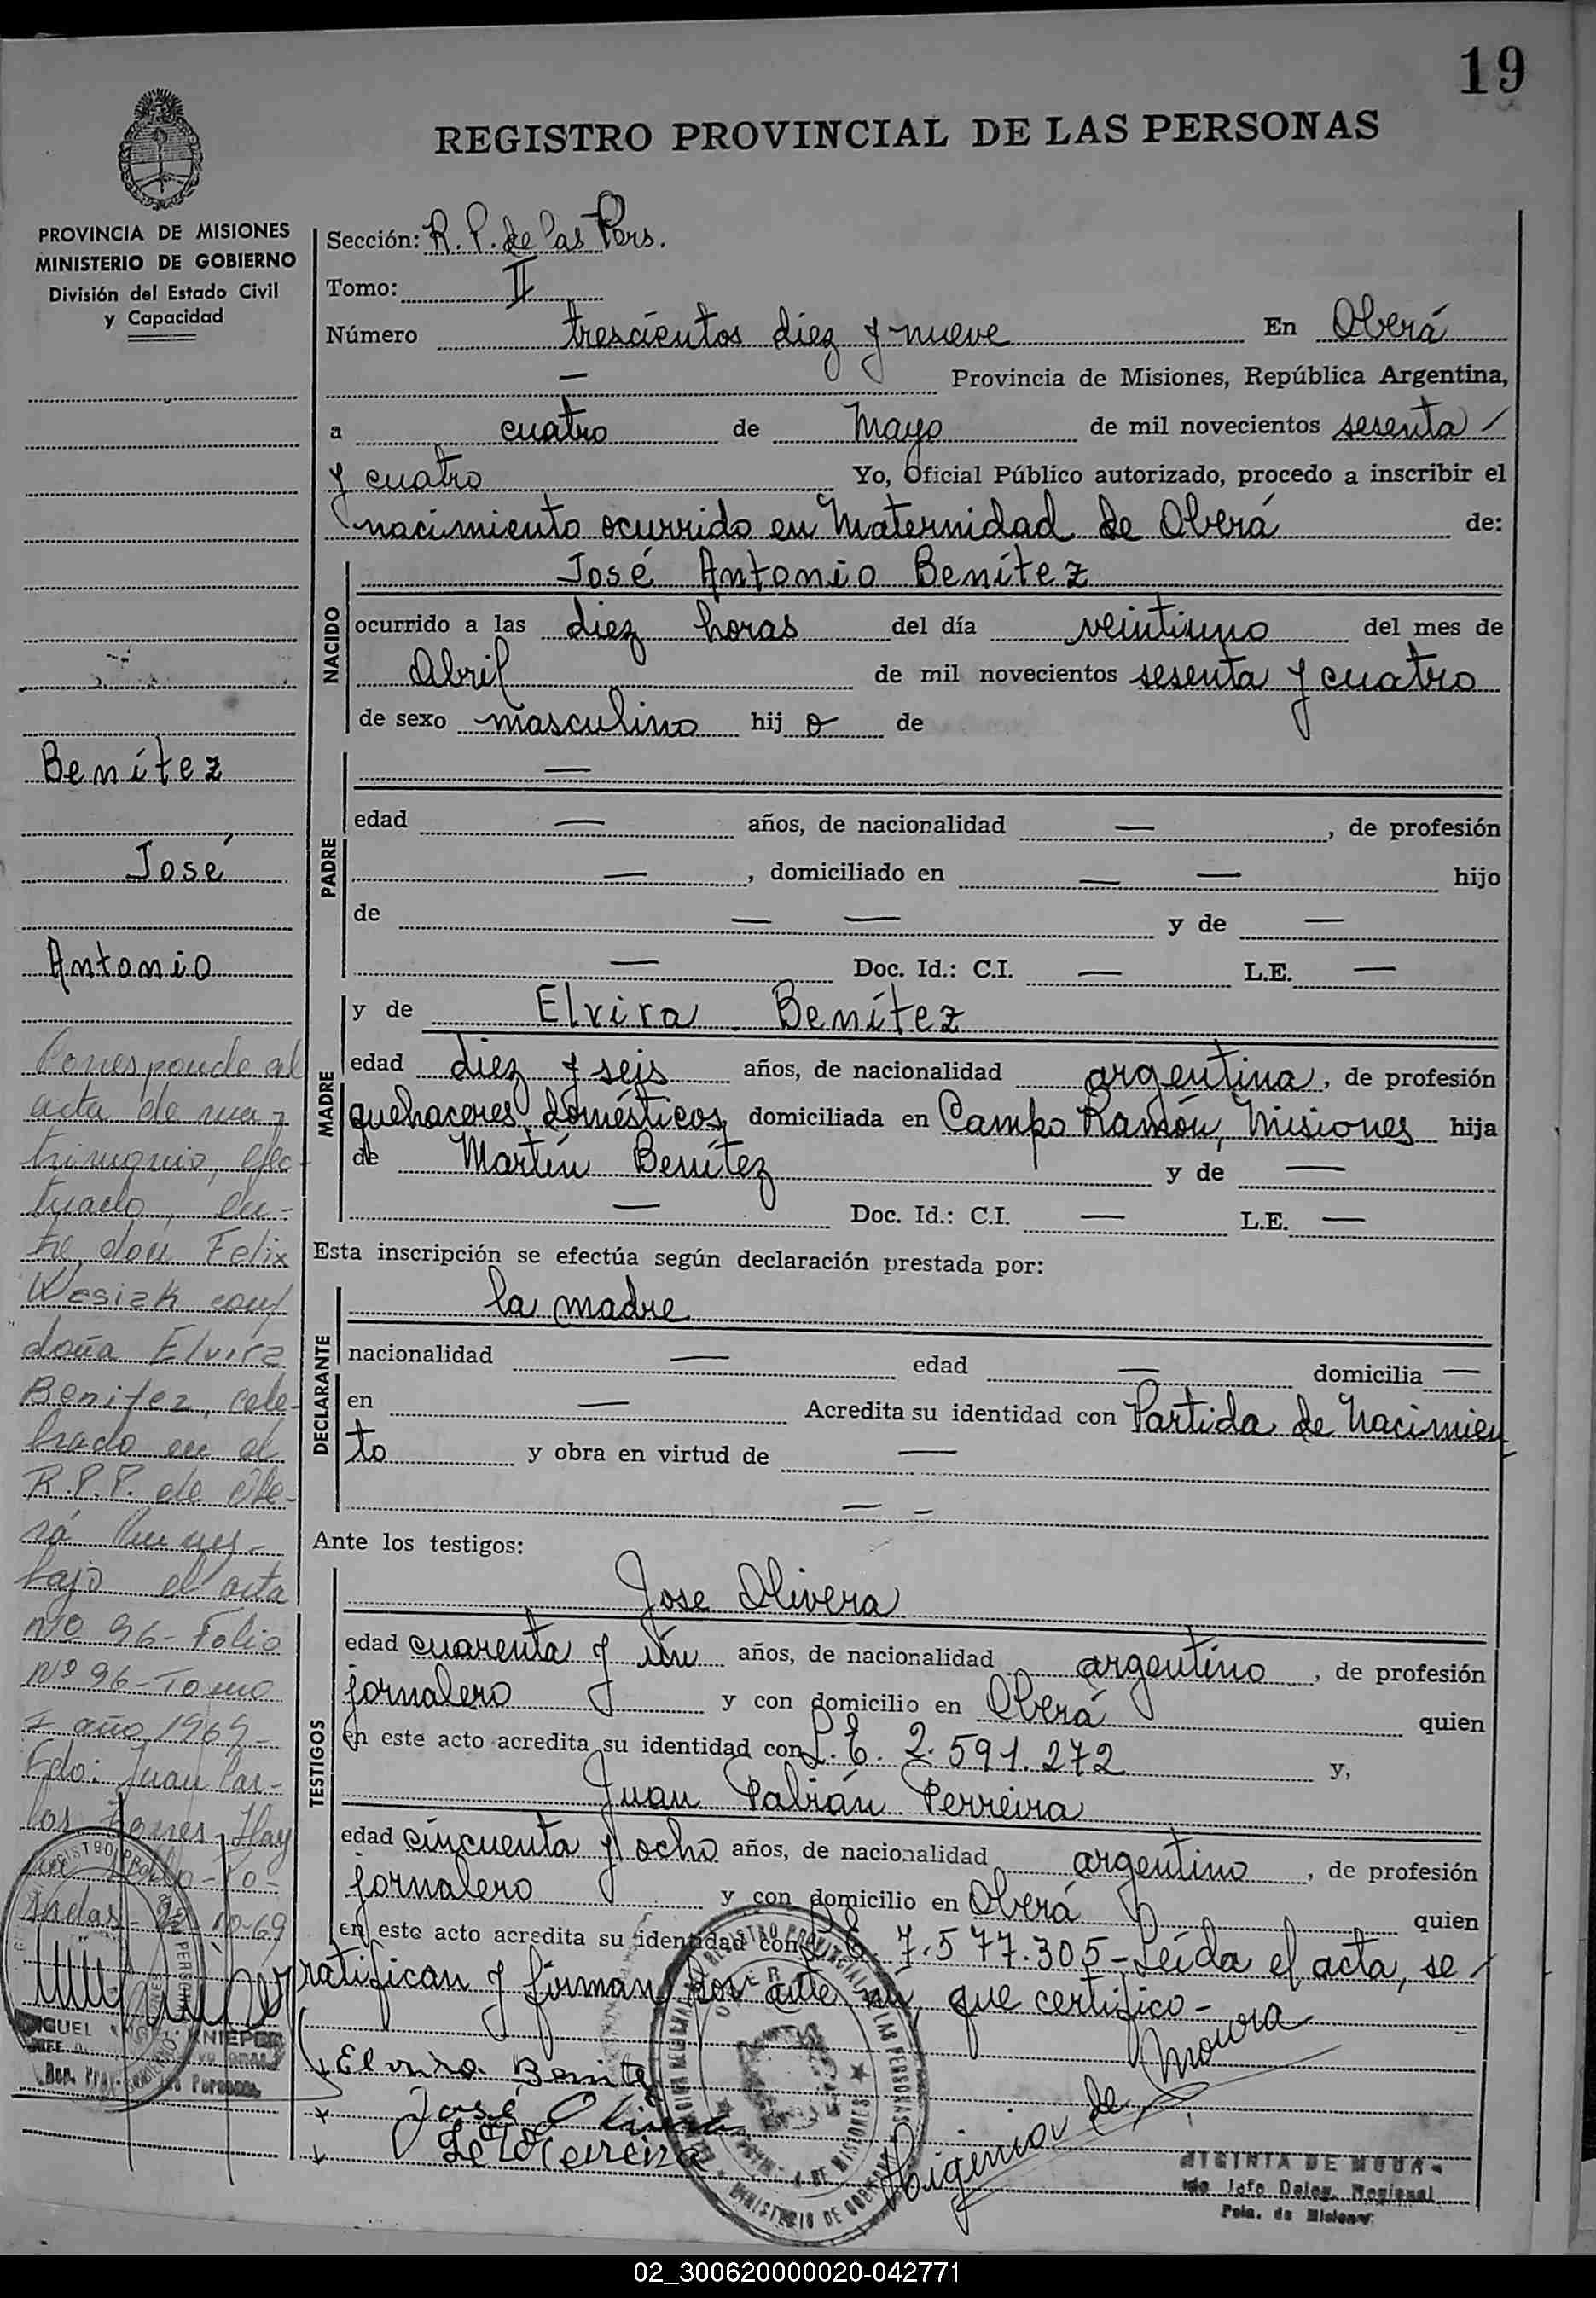 19
REGISTRO PROVINCIAL DE LAS PERSONAS
PROVINCIA DE MISIONES
MINISTERIO DE GOBIERNO
División del Estado Civil
y Capacidad
Benítez
José
Antonio
Corresponde al
acta de ma-
trimonio, efec-
tuado, en-
tre don Felix
Wesiak con
doña Elvira
Benitez, cele-
brado en el
R.P.P. de Obe-
rá
bajo el acta
Nº 96- Folio
Nº 96- Tomo
I año 1969-
Fdo: Juan Car-
los Hay
un sello-Po-
sadas- 22-10-69
Sección: R. P. de las Pers.
Tomo: II
Número trescientos diez y nueve En Oberá
— Provincia de Misiones, República Argentina,
a cuatro de Mayo de mil novecientos sesenta
y cuatro Yo, Oficial Público autorizado, procedo a inscribir el
nacimiento ocurrido en Maternidad de Oberá de:
NACIDO
José Antonio Benítez
ocurrido a las diez horas del día veintiuno del mes de
Abril de mil novecientos sesenta y cuatro
de sexo masculino hij o de
PADRE
—
edad — años, de nacionalidad —, de profesión
—, domiciliado en — — hijo
de — — y de —
— Doc. Id.: C.I. — L.E. —
MADRE
y de Elvira Benítez
edad diez y seis años, de nacionalidad argentina, de profesión
quehaceres domésticos, domiciliada en Campo Ramón, Misiones hija
de Martín Benítez y de —
— Doc. Id.: C.I. — L.E. —
Esta inscripción se efectúa según declaración prestada por:
DECLARANTE
la madre
nacionalidad — edad — domicilia —
en — Acredita su identidad con Partida de Nacimien
to y obra en virtud de —
— —
Ante los testigos:
TESTIGOS
Jose Olivera
edad cuarenta y un años, de nacionalidad argentino, de profesión
jornalero y con domicilio en Oberá quien
en este acto acredita su identidad con L.E. 2.591.272 y,
Juan Fabián Ferreira
edad cincuenta y ocho años, de nacionalidad argentino, de profesión
jornalero y con domicilio en Oberá quien
en este acto acredita su identidad con L.E. 7.577.305- Leída el acta, se
ratifican y firman por ante mí, que certifico-
Elvira Benite
José Olivera
Ferreira
Higinia de Moura
HIGINIA DE MOURA
Jefe Deleg. Regional
Pcia. de Misiones
02_300620000020-042771